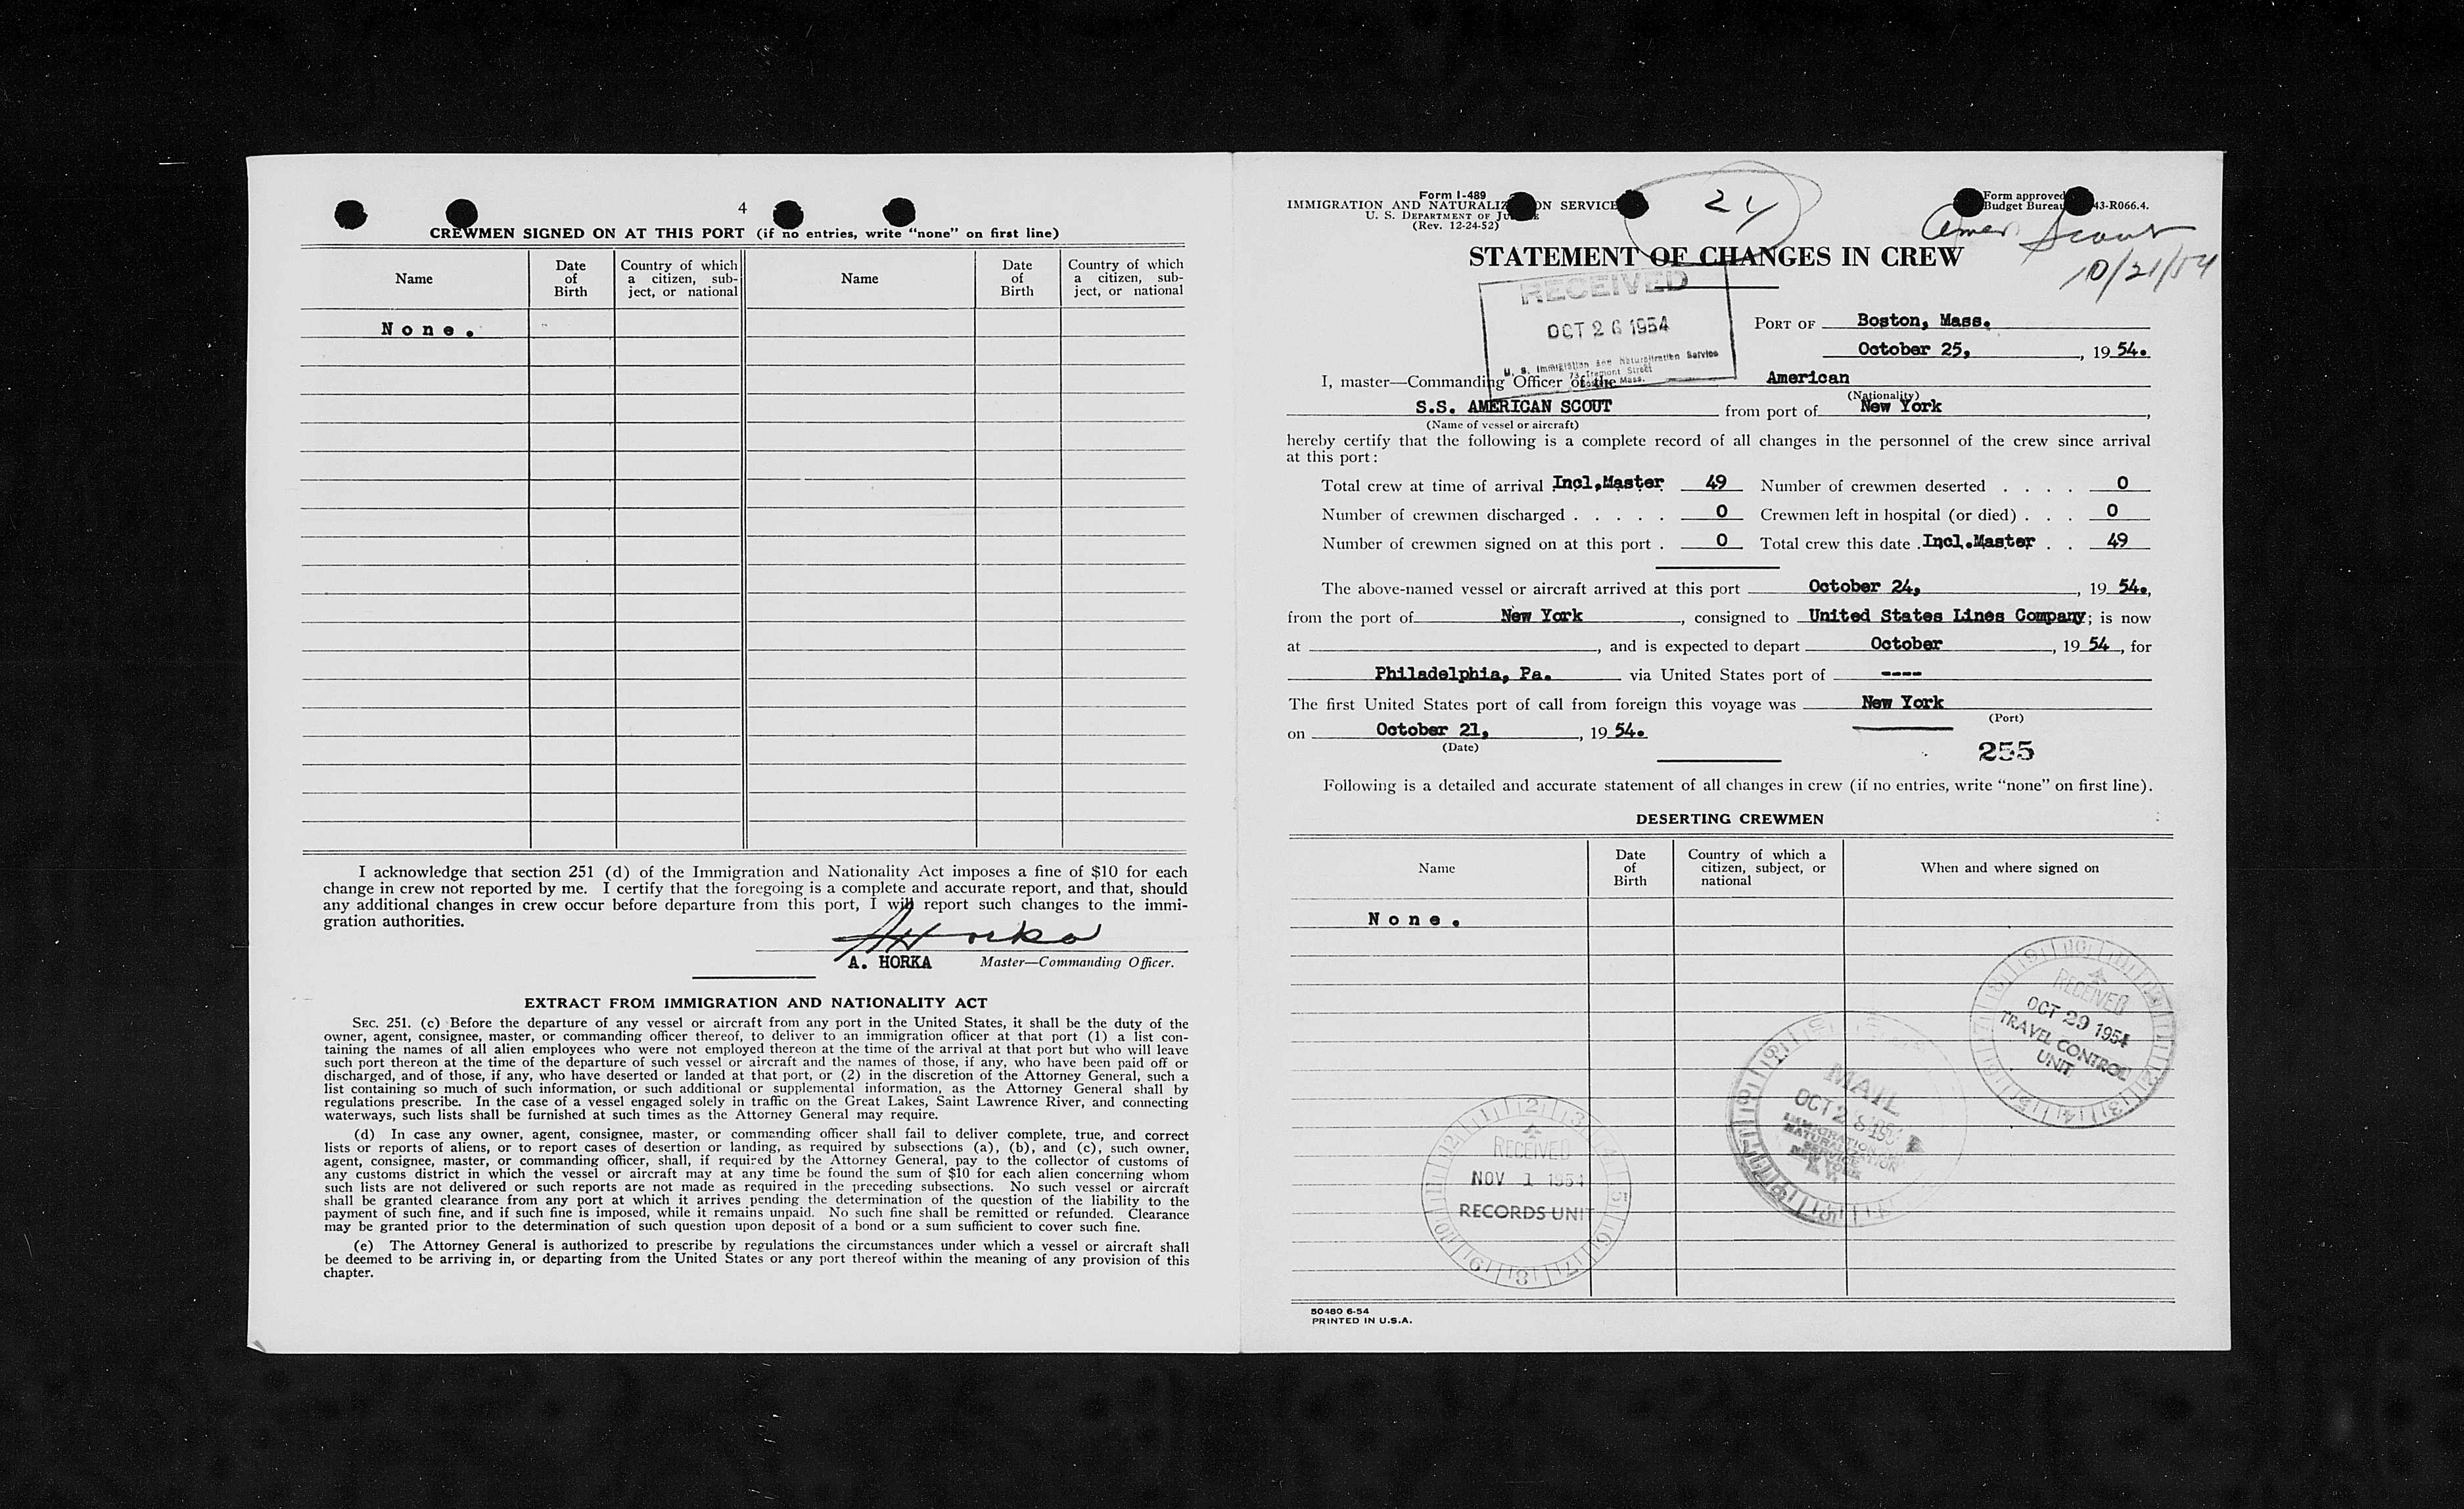 4
CREWMEN SIGNED ON AT THIS PORT (if no entries, write "none" on first line)
Name
Date of Birth
Country of which a citizen, sub-ject, or national
Name
Date of Birth
Country of which a citizen, sub-ject, or national
None.
I acknowledge that section 251 (d) of the Immigration and Nationality Act imposes a fine of $10 for each
change in crew not reported by me. I certify that the foregoing is a complete and accurate report, and that, should
any additional changes in crew occur before departure from this port, I will report such changes to the immi-
gration authorities.
A Horka
A. HORKA Master—Commanding Officer.
EXTRACT FROM IMMIGRATION AND NATIONALITY ACT
SEC. 251. (c) Before the departure of any vessel or aircraft from any port in the United States, it shall be the duty of the
owner, agent, consignee, master, or commanding officer thereof, to deliver to an immigration officer at that port (1) a list con-
taining the names of all alien employees who were not employed thereon at the time of the arrival at that port but who will leave
such port thereon at the time of the departure of such vessel or aircraft and the names of those, if any, who have been paid off or
discharged, and of those, if any, who have deserted or landed at that port, or (2) in the discretion of the Attorney General, such a
list containing so much of such information, or such additional or supplemental information, as the Attorney General shall by
regulations prescribe. In the case of a vessel engaged solely in traffic on the Great Lakes, Saint Lawrence River, and connecting
waterways, such lists shall be furnished at such times as the Attorney General may require.
(d) In case any owner, agent, consignee, master, or commanding officer shall fail to deliver complete, true, and correct
lists or reports of aliens, or to report cases of desertion or landing, as required by subsections (a), (b), and (c), such owner,
agent, consignee, master, or commanding officer, shall, if required by the Attorney General, pay to the collector of customs of
any customs district in which the vessel or aircraft may at any time be found the sum of $10 for each alien concerning whom
such lists are not delivered or such reports are not made as required in the preceding subsections. No such vessel or aircraft
shall be granted clearance from any port at which it arrives pending the determination of the question of the liability to the
payment of such fine, and if such fine is imposed, while it remains unpaid. No such fine shall be remitted or refunded. Clearance
may be granted prior to the determination of such question upon deposit of a bond or a sum sufficient to cover such fine.
(e) The Attorney General is authorized to prescribe by regulations the circumstances under which a vessel or aircraft shall
be deemed to be arriving in, or departing from the United States or any port thereof within the meaning of any provision of this
chapter.
Form I-489
IMMIGRATION AND NATURALIZATION SERVICE
U. S. DEPARTMENT OF JUSTICE
(Rev. 12-24-52)
24
Form approved
Budget Bureau 43-R066.4.
Amer Scout
10/21/54
STATEMENT OF CHANGES IN CREW
RECEIVED
OCT 26 1954
U. S. Immigration and Naturalization Service
73 Tremont Street
Boston, Mass.
PORT OF Boston, Mass.
October 25, , 19 54.
I, master—Commanding Officer of the American
(Nationality)
S.S. AMERICAN SCOUT from port of New York ,
(Name of vessel or aircraft)
hereby certify that the following is a complete record of all changes in the personnel of the crew since arrival
at this port:
Total crew at time of arrival Incl.Master 49 Number of crewmen deserted . . . . 0
Number of crewmen discharged . . . . . 0 Crewmen left in hospital (or died) . . . 0
Number of crewmen signed on at this port . 0 Total crew this date . Incl.Master . . 49
The above-named vessel or aircraft arrived at this port October 24, , 19 54.,
from the port of New York , consigned to United States Lines Company; is now
at , and is expected to depart October , 19 54 , for
Philadelphia, Pa. via United States port of ----
The first United States port of call from foreign this voyage was New York
(Port)
on October 21, , 19 54.
(Date)
255
Following is a detailed and accurate statement of all changes in crew (if no entries, write "none" on first line).
DESERTING CREWMEN
Name
Date of Birth
Country of which a citizen, subject, or national
When and where signed on
None.
RECEIVED
OCT 29 1954
TRAVEL CONTROL
UNIT
MAIL
OCT 28 1954
IMMIGRATION AND
NATURALIZATION
SERVICE
NEW YORK
N.Y.
RECEIVED
NOV 1 1954
RECORDS UNIT
50480 6-54
PRINTED IN U.S.A.